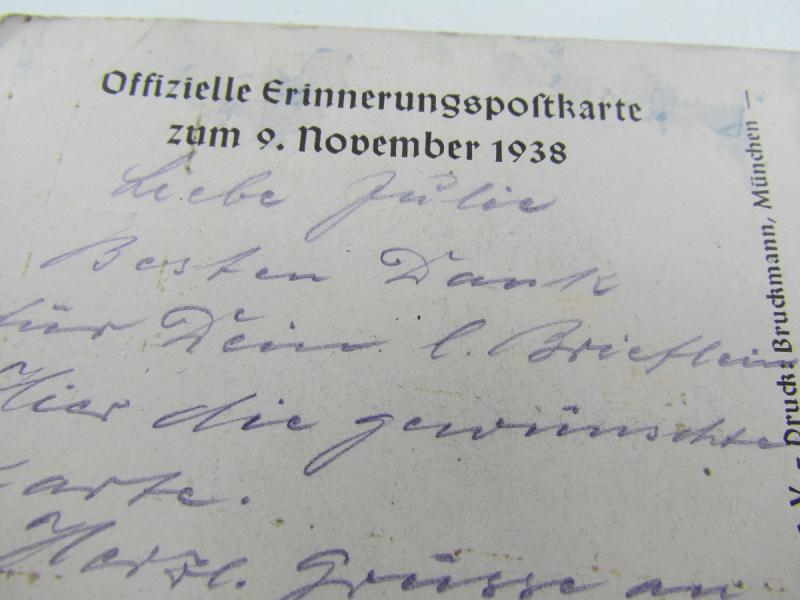 Offizielle Erinnerungspostkarte
zum 9. November 1938
Liebe Julie
Besten Dank
für Dein l. Brieflein
Hier die gewünschte
Karte.
Herzl. Grüsse an
V. - Druck: Bruckmann, München -